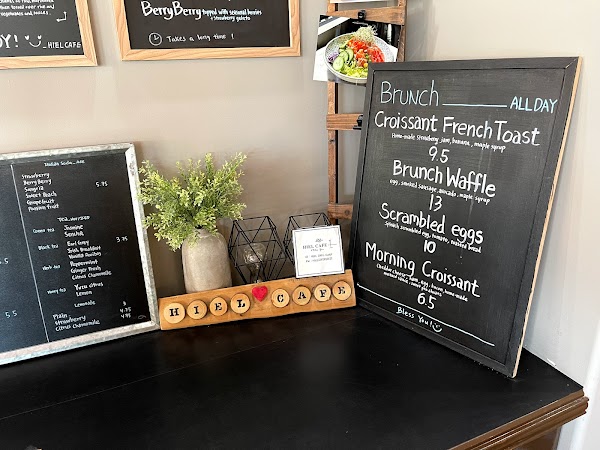 vegetables and noodles.
OY!
HIEL CAFE
BerryBerry topped with seasonal berries
+ strawberry gelato
Takes a long time !
Strawberry
BerryBerry
Sangria
Sweet Peach
Grapefruit
Passion fruit
5.75
Tea
Jasmine
Sencha
Black tea
Earl Grey
Irish Breakfast
3.75
Peppermint
Ginger Peach
Citrus Chamomile
Honey tea
Yuzu citrus
Lemon
Lemonade
Plain
Strawberry 4.75
Citrus Chamomile 4.75
5.5
HIEL CAFE
HIEL CAFE
Brunch ALL DAY
Croissant French Toast
Home-made strawberry jam, banana, maple syrup
9.5
Brunch Waffle
egg, smoked sausage, avocado, maple syrup
13
Scrambled eggs
Spinach scrambled egg, tomato, toasted bread
10
Morning Croissant
Cheddar cheese, ham, egg, bacon, home-made
6.5
Bless You!